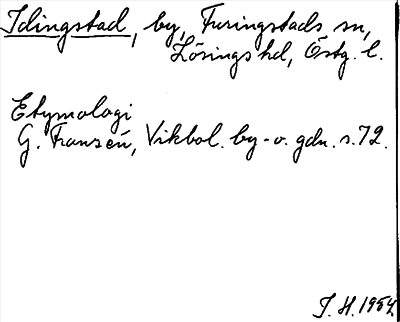 Idingstad, by, Furingstads sn,
Lösings hd, Östg. l.
Etymologi
G. Franzén, Vikbol. by- o. gdn. s. 72.
J. H. 1954.